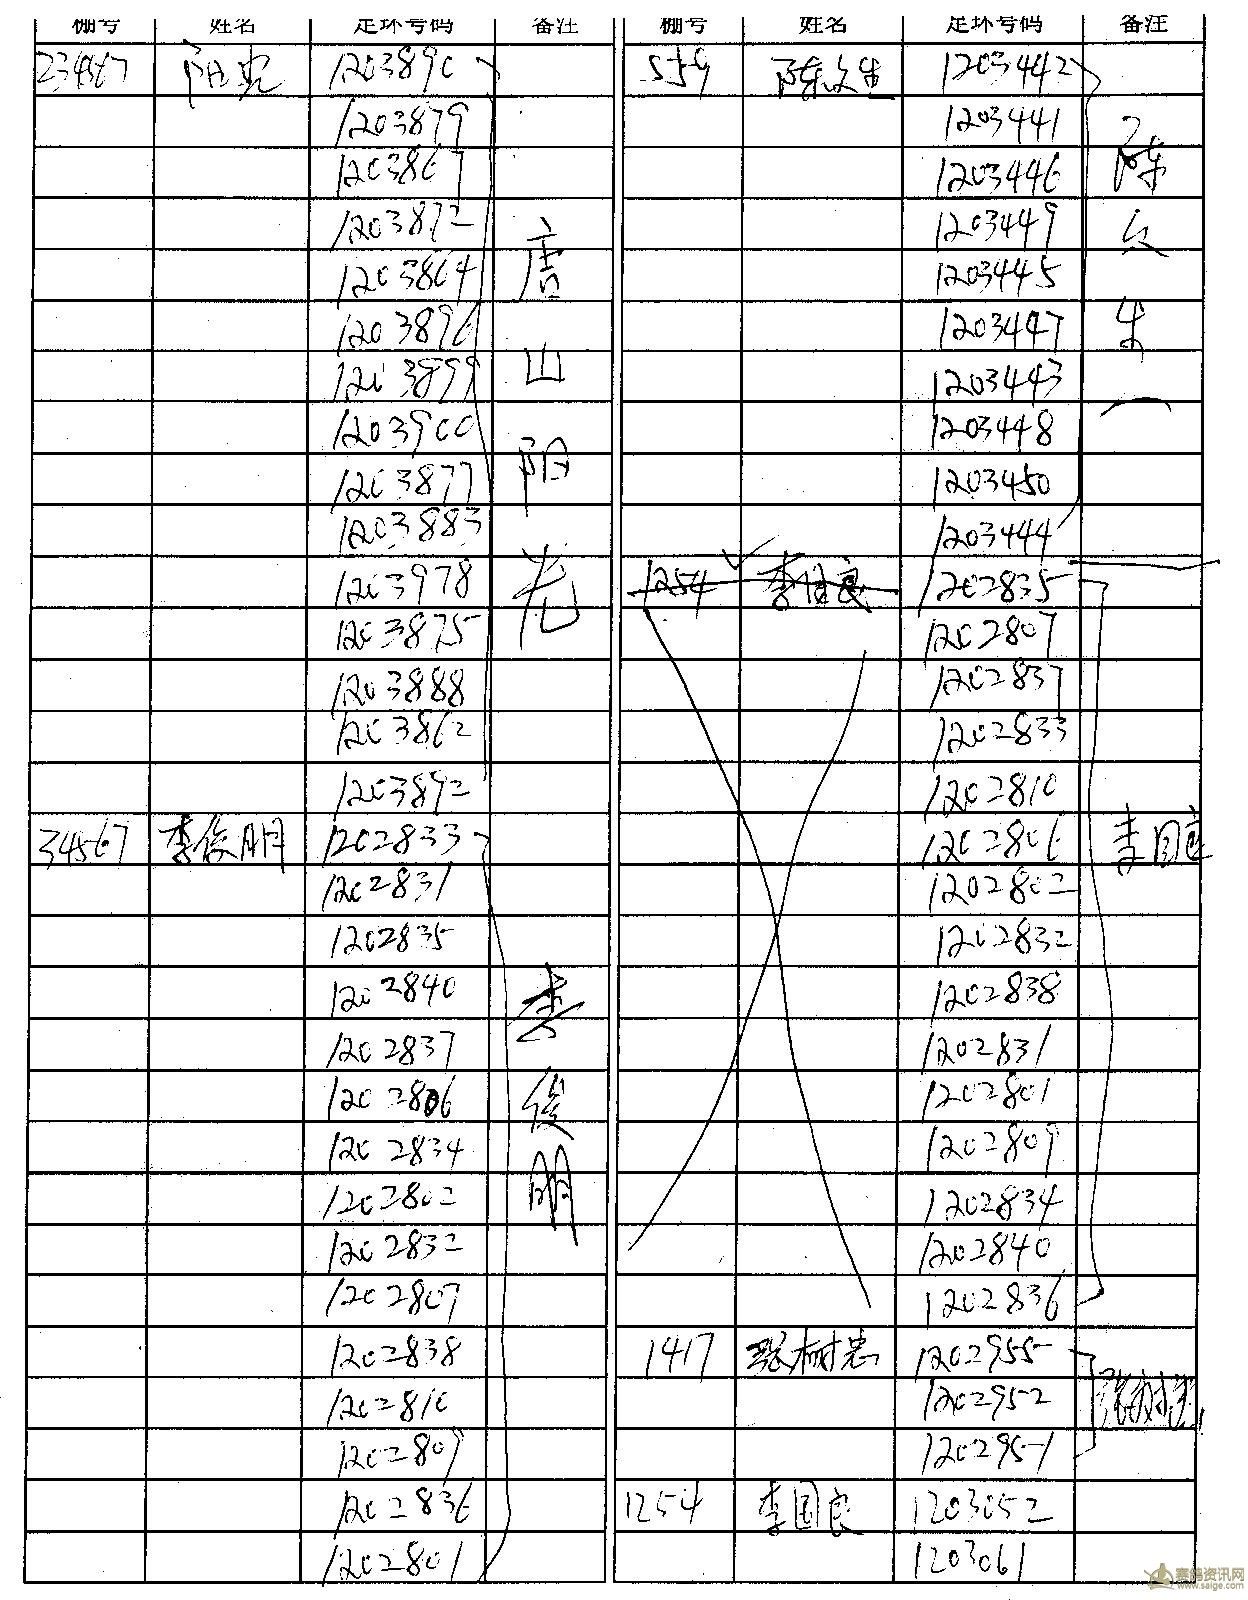 棚号 姓名 足环号码 备注
234567 阳光 1203890
1203879
1203867
1203872
1203864
1203896
1203899
1203900
1203877
1203883
1203978
1203875
1203888
1203862
1203892
唐山阳光
34567 李俊明 1202833
1202831
1202835
1202840
1202837
1202806
1202834
1202802
1202832
1202807
1202838
1202810
1202809
1202836
1202801
李俊明
棚号 姓名 足环号码 备注
559 陈众生 1203442
1203441
1203446
1203449
1203445
1203447
1203443
1203448
1203450
1203444
陈众生
1254 李国良 1202835
1202807
1202837
1202833
1202810
1202806
1202802
1202832
1202838
1202831
1202801
1202809
1202834
1202840
1202836
李国良
1417 张树忠 1202955
1202952
1202951
张树忠
1254 李国良 1203052
1203061
赛鸽资讯网
www.saige.com